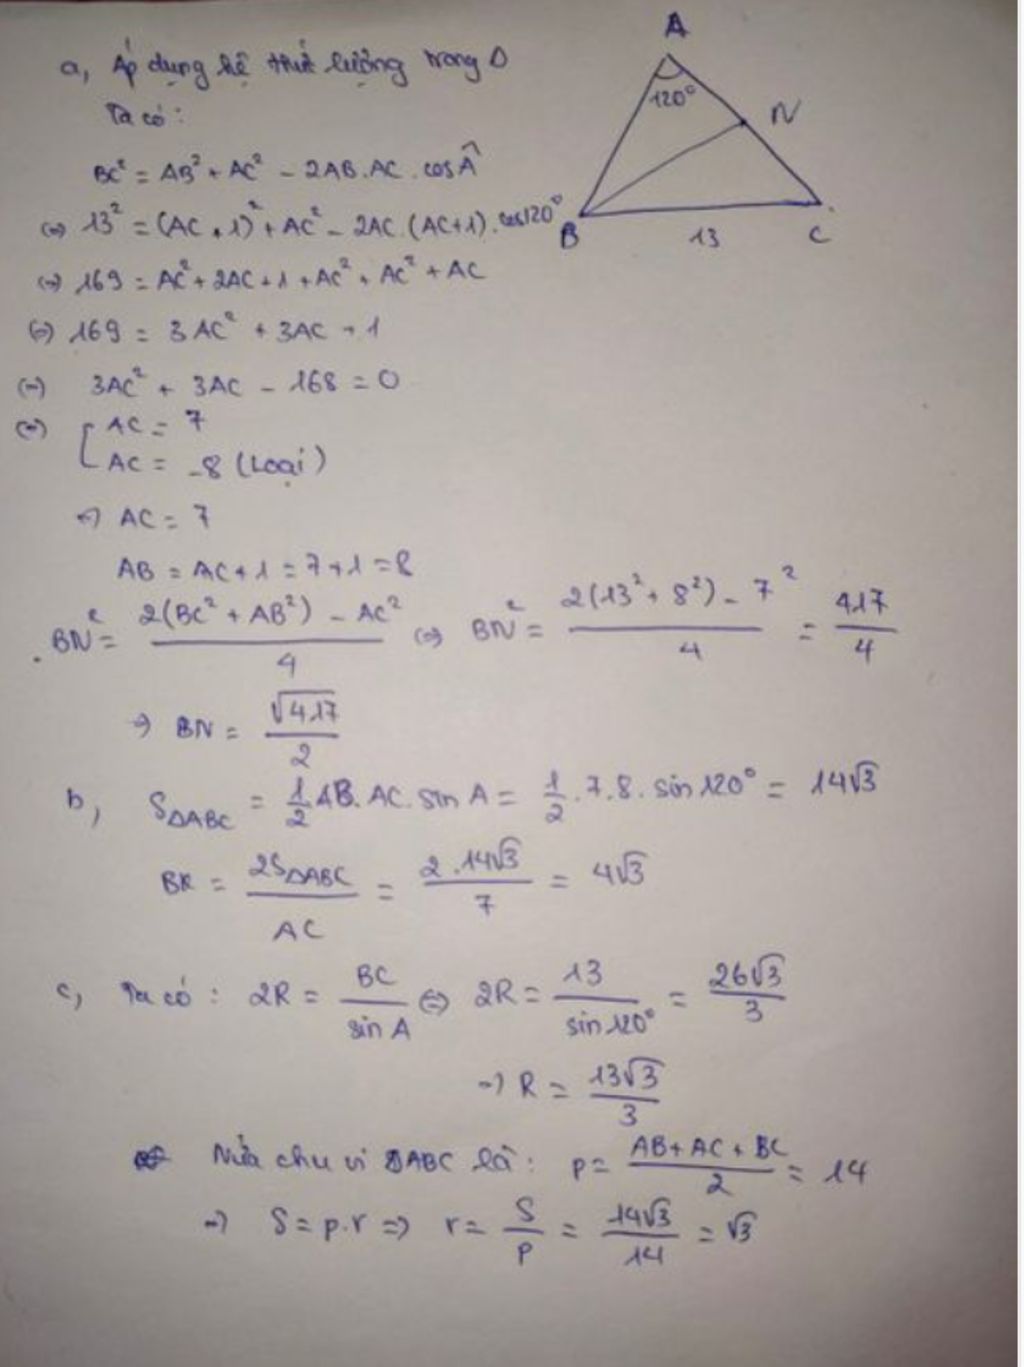 a, Áp dụng hệ thức lượng trong Δ
Ta có:
BC² = AB² + AC² - 2AB.AC.cosÂ
(=) 13² = (AC + 1)² + AC² - 2AC.(AC+1).cos120°
(=) 169 = AC² + 2AC + 1 + AC² + AC² + AC
(=) 169 = 3AC² + 3AC + 1
(=) 3AC² + 3AC - 168 = 0
(=) [ AC = 7
AC = -8 (Loại)
=) AC = 7
AB = AC + 1 = 7 + 1 = 8
. BN² = 2(BC² + AB²) - AC² / 4 (=) BN² = 2(13² + 8²) - 7² / 4 = 417 / 4
=) BN = √417 / 2
b, S_ΔABC = 1/2 AB.AC.sin A = 1/2 .7.8.sin120° = 14√3
BK = 2S_ΔABC / AC = 2.14√3 / 7 = 4√3
c, Ta có: 2R = BC / sin A (=) 2R = 13 / sin120° = 26√3 / 3
=) R = 13√3 / 3
Nửa chu vi ΔABC là: p = AB + AC + BC / 2 = 14
=) S = p.r =) r = S / p = 14√3 / 14 = √3
A
120°
N
B
13
C